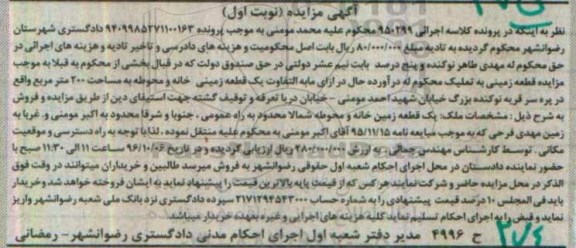 آگهی مزایده (نوبت اول)
نظر به اینکه در پرونده کلاسه اجرائی ۹۵۰۲۹۹ محکوم علیه محمد مومنی به موجب پرونده ۹۴۰۹۹۸۵۲۷۱۱۰۰۱۶۳ دادگستری شهرستان
رضوانشهر محکوم گردیده به تادیه مبلغ ۸۰/۰۰۰/۰۰۰ ریال بابت اصل محکومیت و هزینه های دادرسی و تاخیر تادیه و هزینه های اجرائی در
حق محکوم له مهدی طاهر نوکنده و پنج درصد بابت نیم عشر دولتی در حق صندوق دولت که در قبال بخشی از محکوم به قبلا به موجب
مزایده قطعه زمینی به تملیک محکوم له درآورده حال در ازای مابه التفاوت یک قطعه زمینی خانه و محوطه به مساحت ۲۰۰ متر مربع واقع
در پره سر قریه نوکنده بزرگ خیابان شهید احمد مومنی - خیابان دریا تعرفه و توقیف گشته جهت استیفای دین از طریق مزایده و فروش
به شرح ذیل: مشخصات ملک: یک قطعه زمین خانه و محوطه شمالا محدود به راه عمومی، جنوبا و شرقا محدود به اکبر مومنی و غربا به
زمین مهدی فرحی که به موجب مبایعه نامه ۹۵/۱۱/۱۵ آقای اکبر مومنی به محکوم علیه منتقل نموده. لذا با توجه به راه دسترسی و موقعیت
مکانی، توسط کارشناس مهندس جمالی به ارزش ۲۸۰/۰۰۰/۰۰۰ ریال ارزیابی گردیده و در تاریخ ۹۶/۱۰/۰۶ ساعت ۱۱ الی ۱۱:۳۰ صبح با
حضور نماینده دادستان در محل اجرای احکام شعبه اول حقوقی رضوانشهر به فروش میرسد طالبین و خریداران میتوانند در وقت فوق
الذکر در محل مزایده حاضر و شرکت نمایند هر کس که از قیمت پایه بالاترین قیمت را پیشنهاد نماید به ایشان فروخته خواهد شد و خریدار
باید فی المجلس ۱۰ درصد قیمت پیشنهادی را به شماره حساب ۲۱۷۱۲۹۴۵۴۳۰۰۰ سپرده دادگستری نزد بانک ملی شعبه رضوانشهر واریز
نماید و قبض را به اجرای احکام تسلیم نماید کلیه هزینه های اجرایی و غیره بعهده خریدار میباشد
ج ۴۹۹۶ مدیر دفتر شعبه اول اجرای احکام مدنی دادگستری رضوانشهر - رمضانی